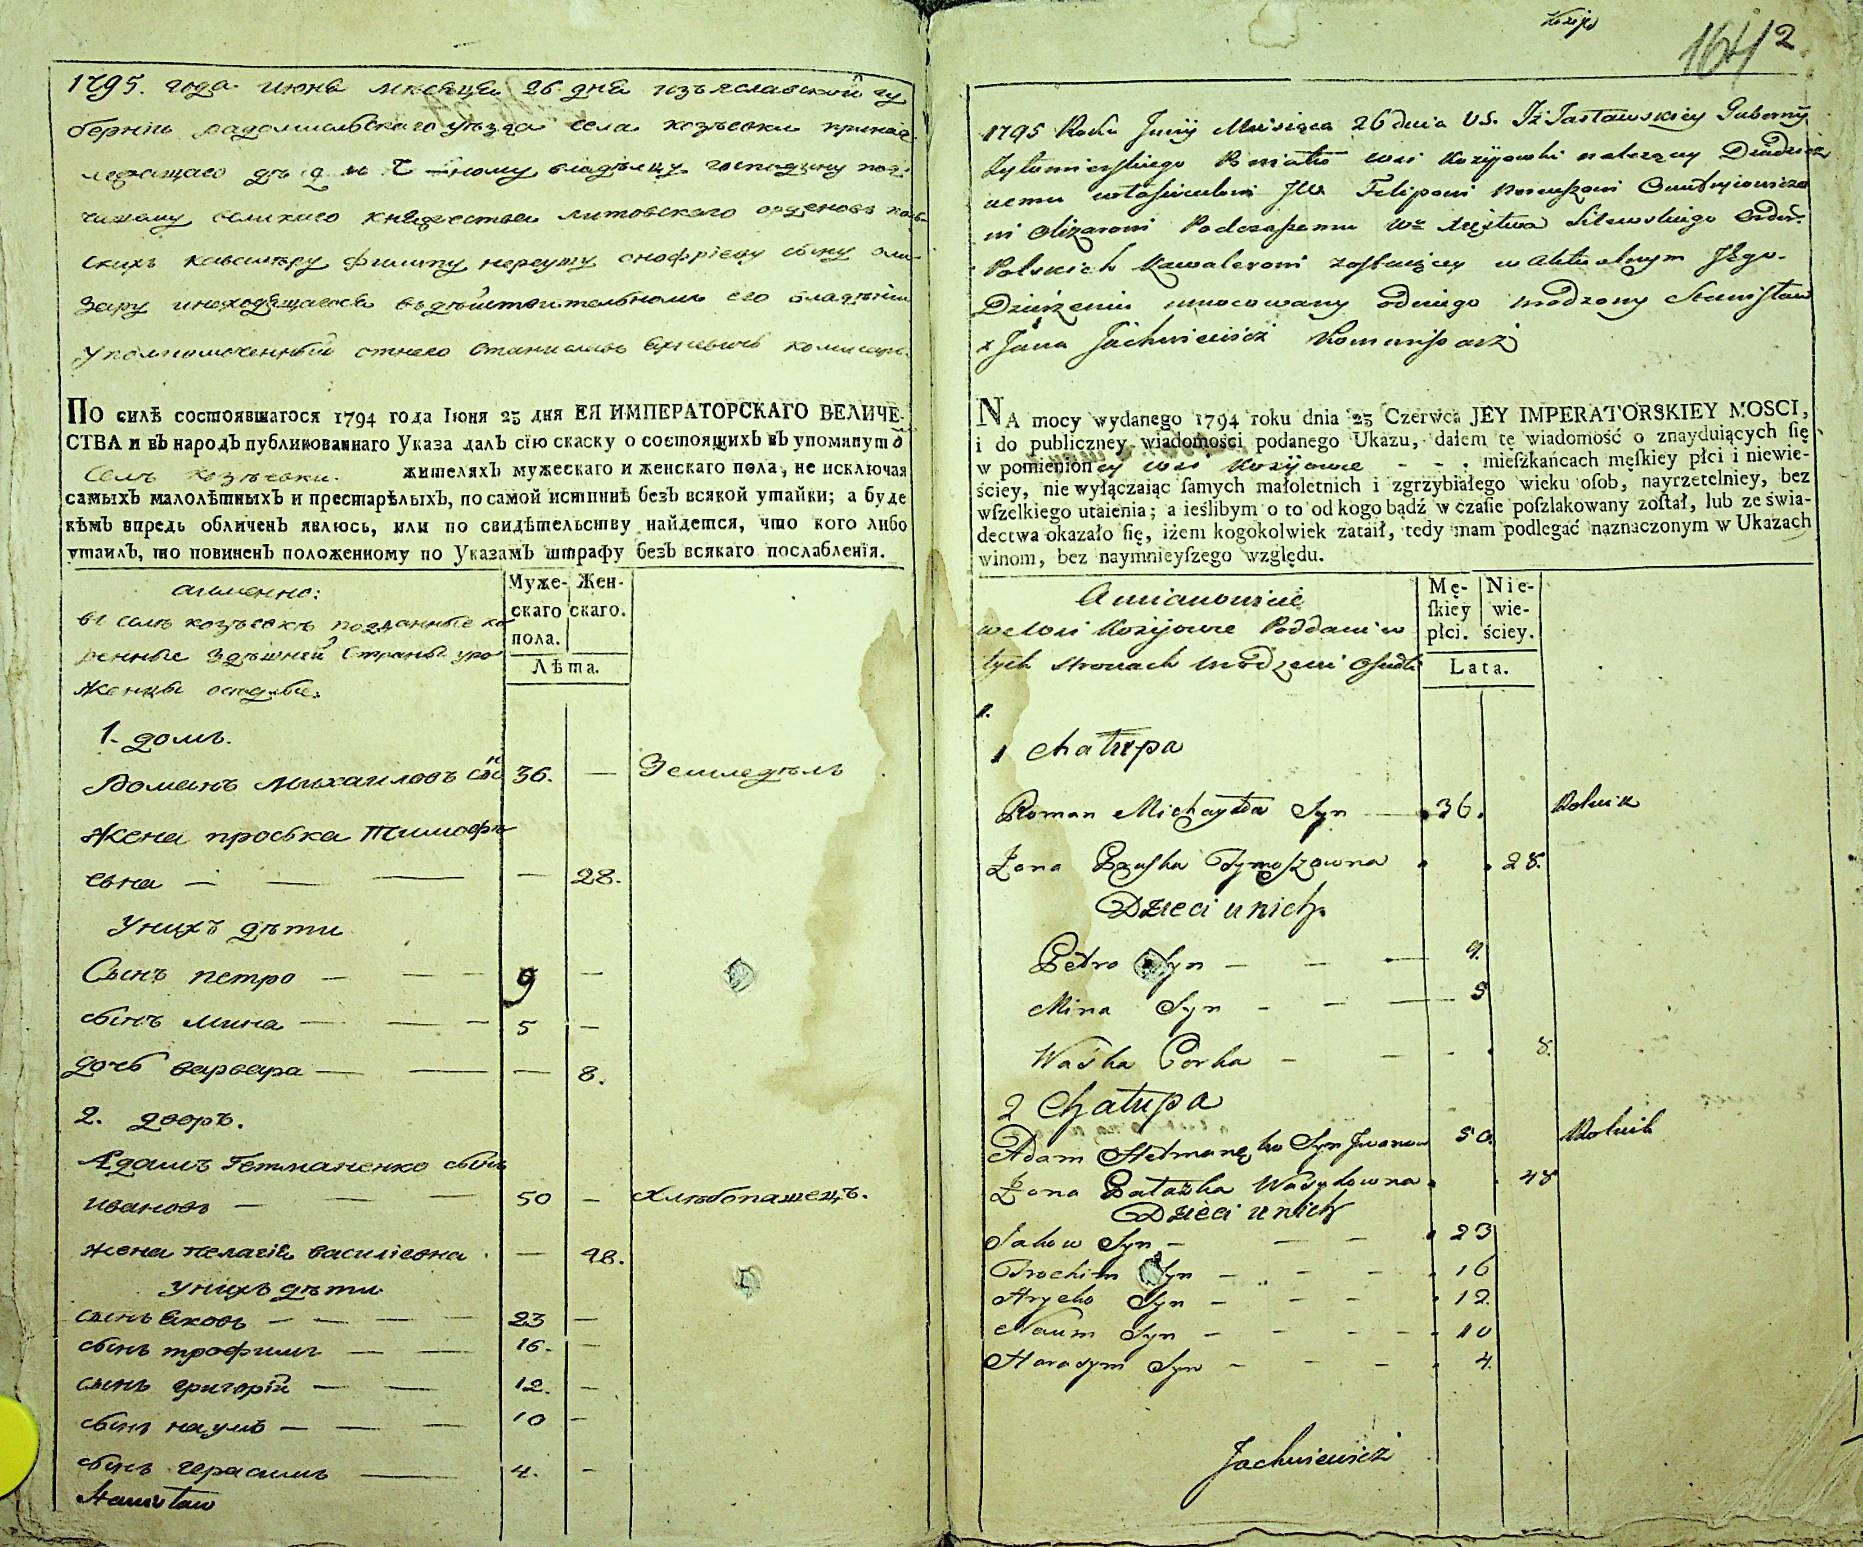 1795. года июня месяца 26. дня изъяславской гу
бернiи радомысльскаго уезда села козъевки принад
лежащаго владельцу господину под
чашему великаго княжества литовскаго орденовъ поль
скихъ кавалеру филипу нереушу онофрiеву сыну оли
зару инаходящагося въдействительномъ его владенiи
уполномоченный отнего Станиславъ Яхневичь комисаръ
ПО силѣ состоявшагося 1794 года Iюня 23 дня ЕЯ ИМПЕРАТОРСКАГО ВЕЛИЧЕ-
СТВА и въ народъ публикованнаго Указа далъ сiю скаску о состоящихъ въ упомянутомъ
селѣ козъевки. жителяхъ мужескаго и женскаго пола, не исключая
самыхъ малолѣтныхъ и престарѣлыхъ, по самой истиннѣ безъ всякой утайки; а буде
кѣмъ впредь обличенъ явлюсь, или по свидѣтельству найдется, что кого либо
утаилъ, то повиненъ положенному по Указамъ штрафу безъ всякаго послабленiя.
аименно:
въ селѣ козъевкѣ подданные ко
ренные здѣшней страны уро
женцы оседлые.
Муже- Жен-
скаго скаго.
пола.
Лѣта.
1. домъ.
Романъ Михаиловъ сынъ 36. — Земледѣлъ
Жена проська Тимофѣ
евна — — — — 28.
Унихъ дѣти
Сынъ петро — — — 9 —
сынъ мина — — — 5 —
дочь варвара — — — 8.
2. дворъ.
Адамъ Гетманенко сынъ
ивановъ — — — 50 — Хлѣбопашецъ.
жена пелагiя василiевна — 48.
унихъ дѣти
сынъ яковъ — — — — 23 —
сынъ трофимъ — — 16. —
сынъ григорiй — — 12. —
сынъ наумъ — — — 10 —
сынъ герасимъ — 4. —
Stanisław
164 2
1795 Roku Junÿ Miesiąca 26 dnia V.S. Iz Jasławskiey Gubernÿ
Zytomierskiego Powiatu wsi Kozijowki należący Dziedzicz
nemu JW. Felipowi
ni Olizarowi Podczaszemu Wo Xięstwa Litewskiego Order.
Polskich Kawalerowi zostaiącey w aktualnym Jego
Dzierżeniu umocowany odniego urodzony Stanisław
x Jana Jachniewicz Kommissarz
NA mocy wydanego 1794 roku dnia 23 Czerwca JEY IMPERATORSKIEY MOSCI,
i do publiczney wiadomości podanego Ukazu, dałem tę wiadomość o znayduiących ſię
w pomienioney wsi Kozijowce - - . mieſzkańcach męſkiey płci i niewie-
ściey, nie wyłączaiąc ſamych małoletnich i zgrzybiałego wieku oſob, nayrzetelniey, bez
wſzelkiego utaienia; a ieślibym o to od kogo bądź w czaſie poſzlakowany zoſtał, lub ze świa-
dectwa okazało ſię, iżem kogokolwiek zataił, tedy mam podlegać naznaczonym w Ukazach
winom, bez naymnieyſzego względu.
Amianowicie
we Wsi Kozijowce Poddani w
tych stronach urodzeni osiedli
Mę- Nie-
ſkiey wie-
płci. ściey.
Lata.
1.
1 Chałupa
Roman Michayła Syn — 36. Rolnik
Żona Pruska Tymoszowna 28.
Dzieci u nich.
Petro Syn — — — 9.
Mina Syn - — — 5
Waśka Corka — — - 8.
2 Chałupa
Adam Hetmanęko Syn Jwanow 50. Rolnik
Żona Pałażka Wasylowna 48
Dzieci u nich
Jakow Syn — — — 23
Trochim Syn — - — 16
Hryćko Syn — - — 12
Naum Syn — - - — 10
Harasym Syn — - — 4.
Jachniewicz